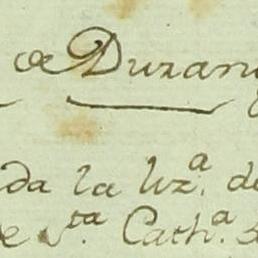 de Duran
da la lız.ª de
de S.ta Cath.ª